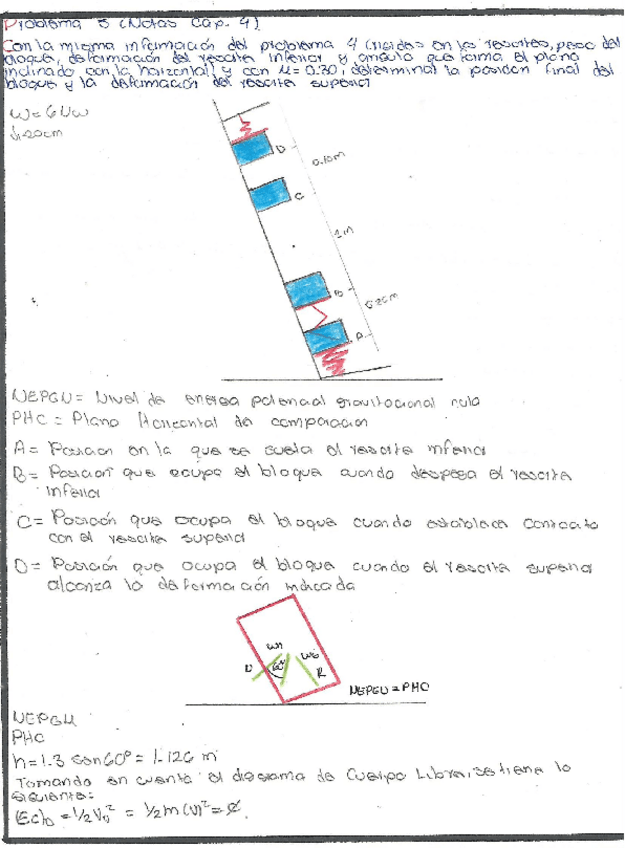 Problema 5 (Notas Cap. 4)
Con la misma información del problema 4 (rigidez en los resortes, peso del
bloque, deformación del resorte inferior y ángulo que forma el plano
inclinado con la horizontal) y con μ = 0.30, determinar la posición final del
bloque y la deformación del resorte superior
W = 6 Nw
D
0.10m
C
1m
B
A
NEPGN = Nivel de energía potencial gravitacional nula
PHC = Plano Horizontal de comparación
A = Posición en la que se suelta el resorte inferior
B = Posición que ocupa el bloque cuando despega el resorte
inferior
C = Posición que ocupa el bloque cuando establece contacto
con el resorte superior
D = Posición que ocupa el bloque cuando el resorte superior
alcanza la deformación indicada
N
60°
R
NEPGN = PHC
NEPGN
PHC
h = 1.3 sen 60° = 1.126 m
Tomando en cuenta el diagrama de Cuerpo Libre, se tiene lo
siguiente:
(Ec)D = 1/2 V_D² = 1/2 m (V)² = 0.